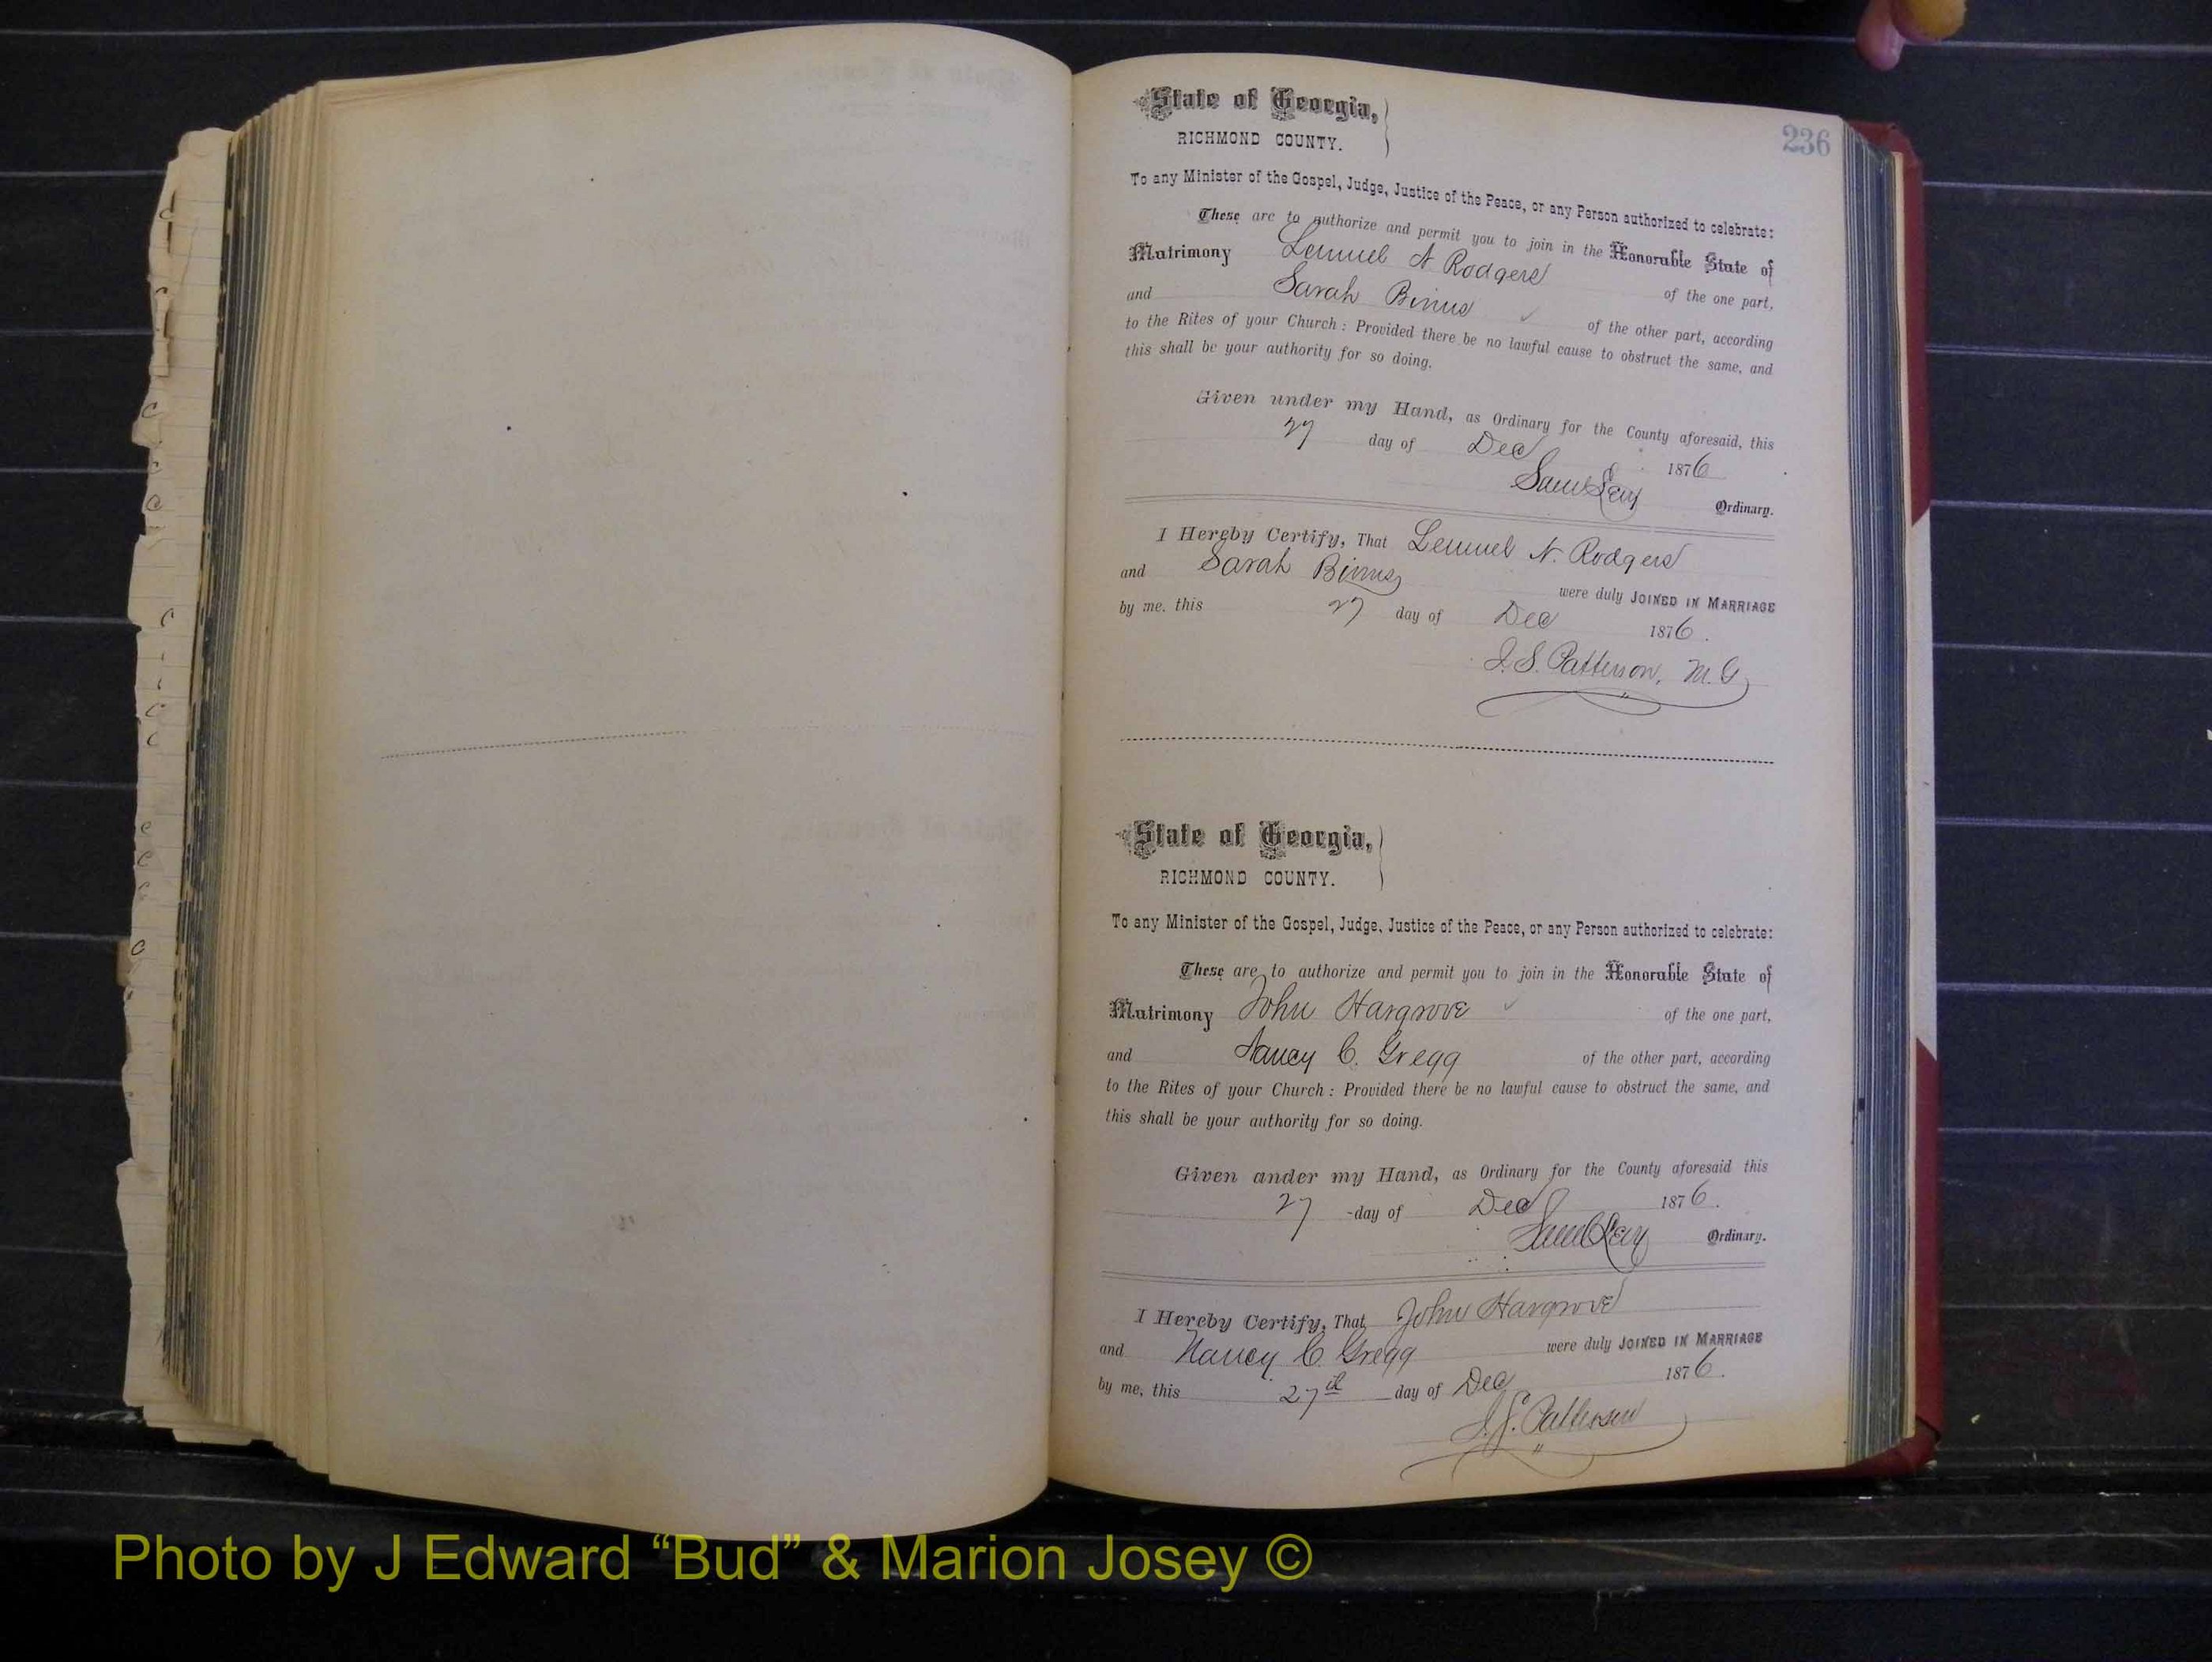 236
State of Georgia,
RICHMOND COUNTY.
To any Minister of the Gospel, Judge, Justice of the Peace, or any Person authorized to celebrate:
These are to authorize and permit you to join in the Honorable State of
Matrimony Lemuel N Rodgers of the one part,
and Sarah Binns of the other part, according
to the Rites of your Church: Provided there be no lawful cause to obstruct the same, and
this shall be your authority for so doing.
Given under my Hand, as Ordinary for the County aforesaid, this
27 day of Dec 1876
Saml Levy Ordinary.
I Hereby Certify, That Lemuel N. Rodgers
and Sarah Binns were duly JOINED IN MARRIAGE
by me, this 27 day of Dec 1876.
J. S. Patterson, M.G
State of Georgia,
RICHMOND COUNTY.
To any Minister of the Gospel, Judge, Justice of the Peace, or any Person authorized to celebrate:
These are to authorize and permit you to join in the Honorable State of
Matrimony John Hargrove of the one part,
and Nancy C. Gregg of the other part, according
to the Rites of your Church: Provided there be no lawful cause to obstruct the same, and
this shall be your authority for so doing.
Given under my Hand, as Ordinary for the County aforesaid this
27 day of Dec 1876.
Saml Levy Ordinary.
I Hereby Certify, That John Hargrove
and Nancy C. Gregg were duly JOINED IN MARRIAGE
by me, this 27th day of Dec 1876.
J. S. Patterson
Photo by J Edward “Bud” & Marion Josey ©